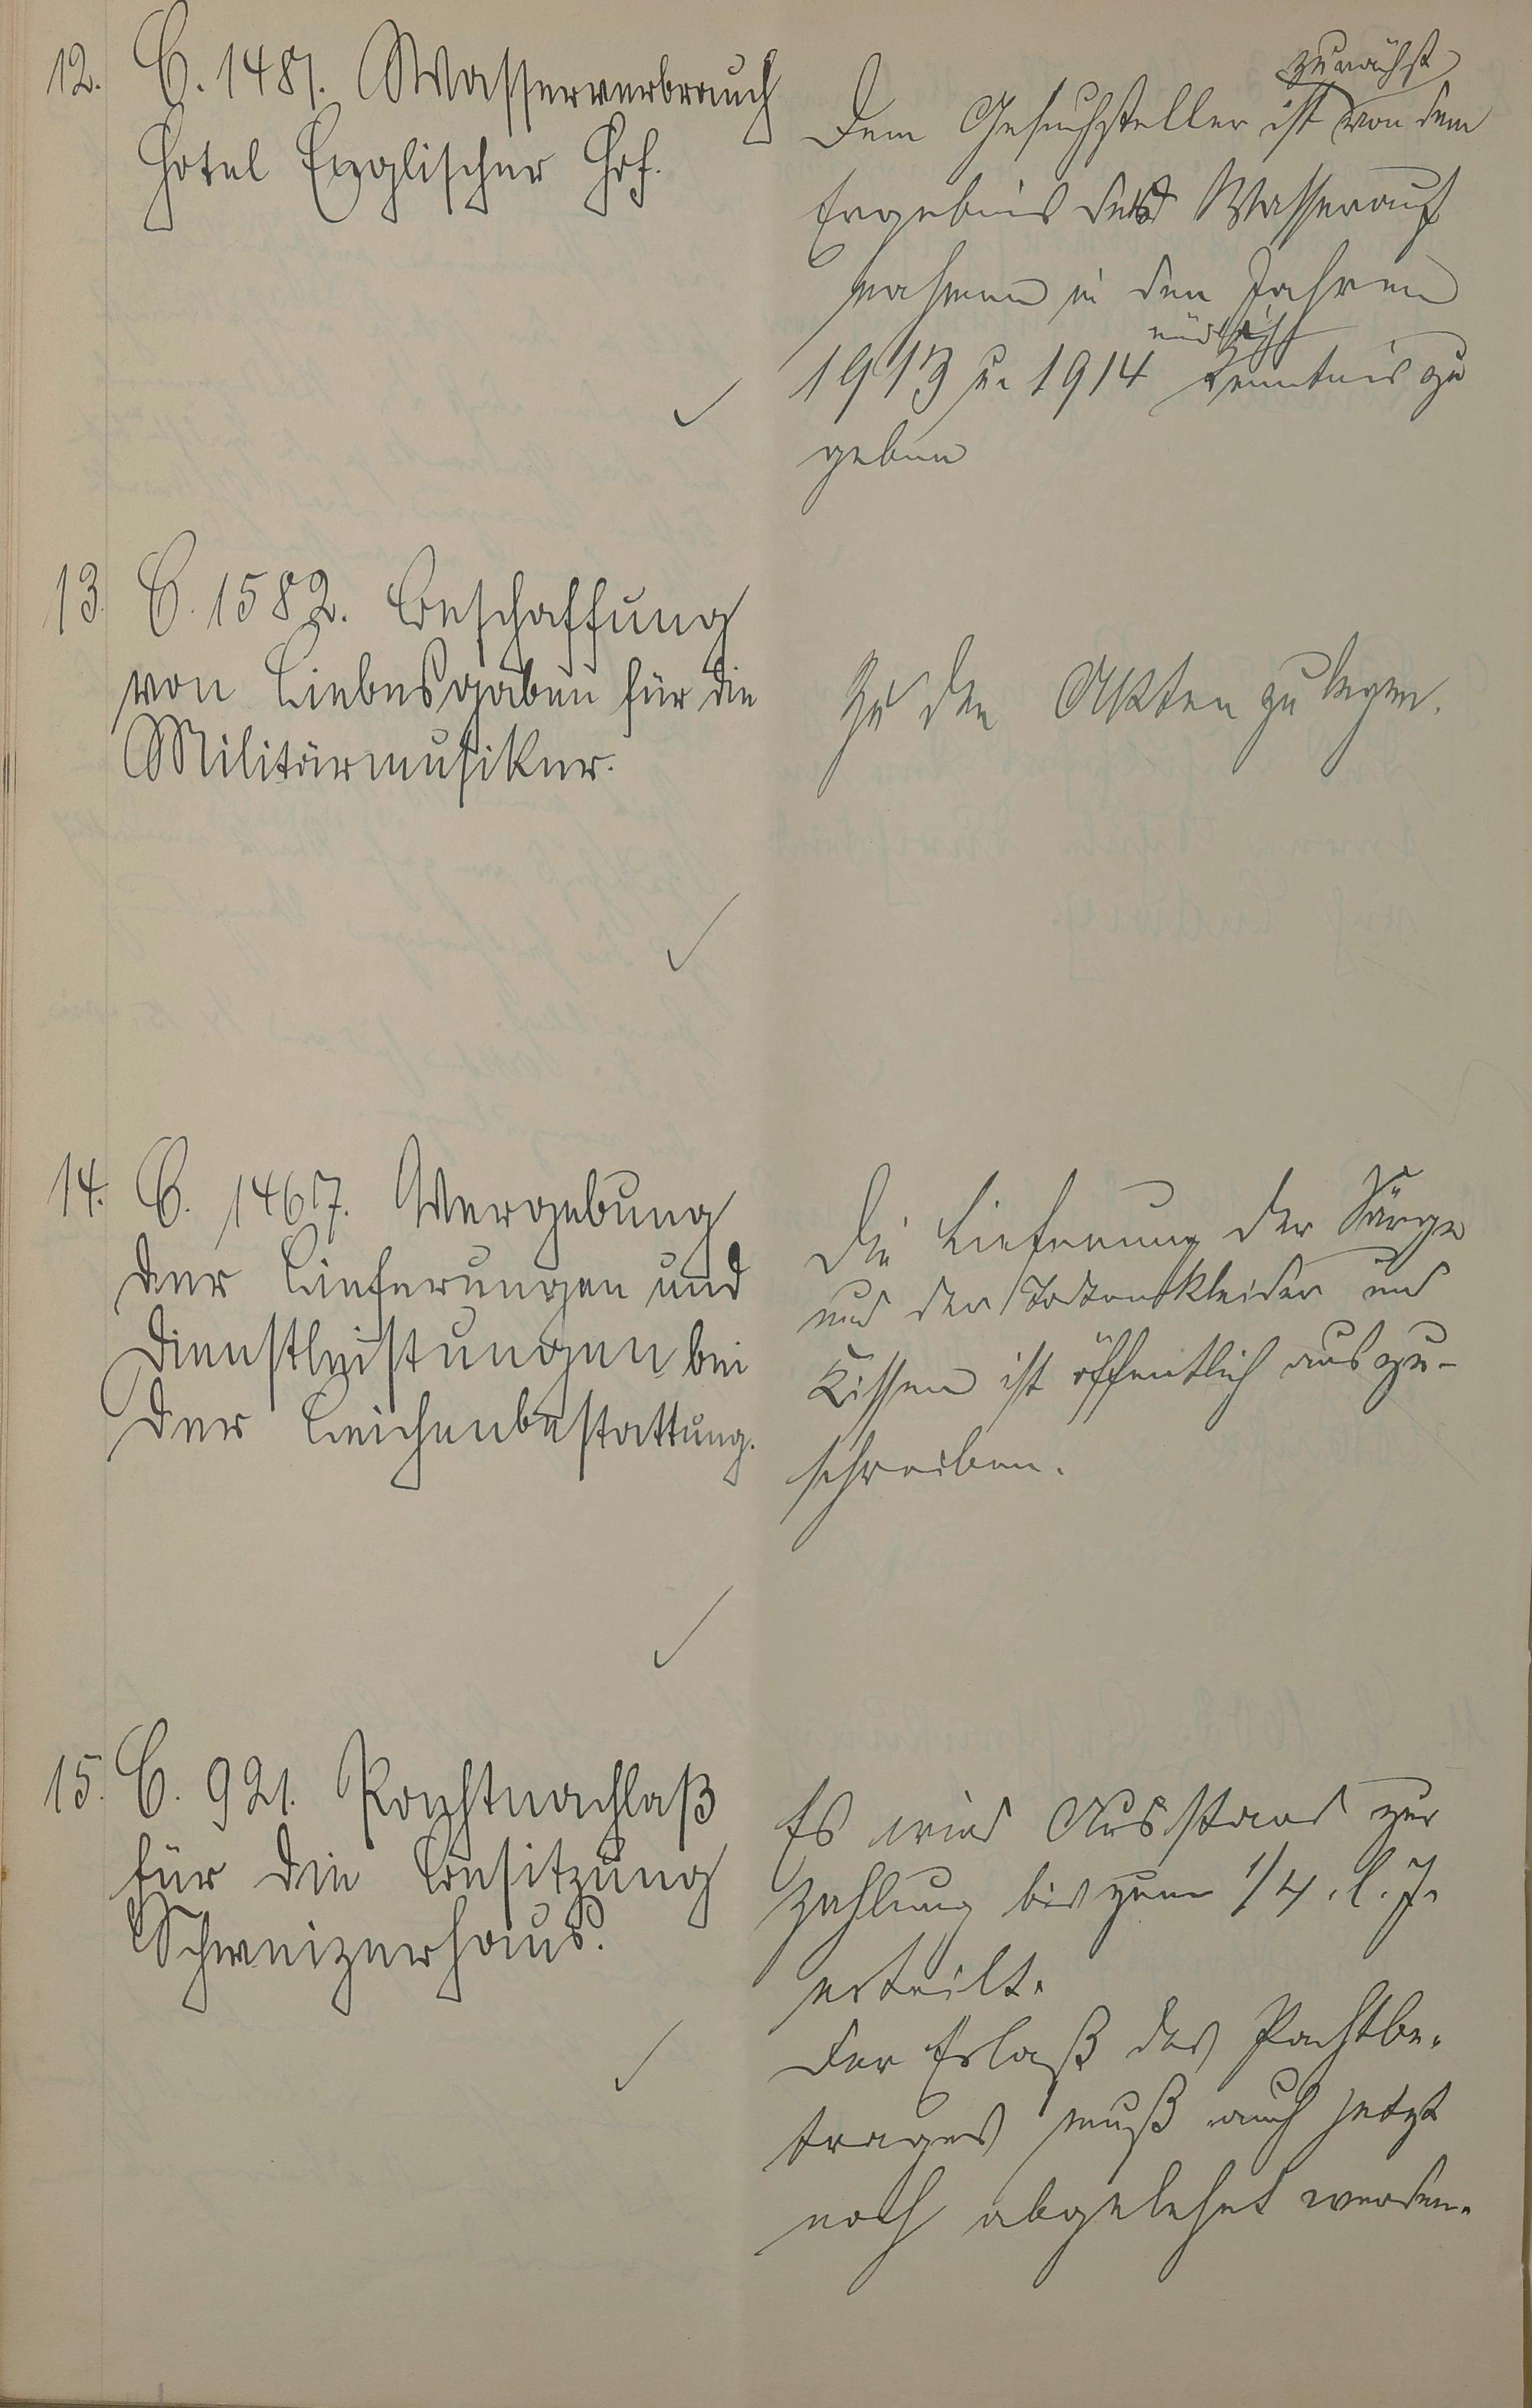 12. C. 1481. Wasserverbrauch
Hotel Englischer Hof.
zunächst
Dem Gesuchsteller ist von dem
Ergebnis der Wasserauf
nahmen in den Jahren
1913 u. 1914 Kenntnis zu
geben
13. C. 1582. Beschaffung
von Liebesgaben für die
Militärmusiker.
Zu den Akten zu legen.
14. C. 1467. Vergebung
der Lieferungen und
Dienstleistungen bei
der Leichenbestattung.
Die Lieferung der Särge
und der Totenkleider und
Kissen ist öffentlich auszu-
schreiben.
15. C. 921. Pachtnachlaß
für die Besitzung
Schweizerhaus.
Es wird Ausstand zur
Zahlung bis zum 1/4. l. J.
erteilt.
Der Erlaß des Pachtbe-
trages muß auch jetzt
noch abgelehnt werden.